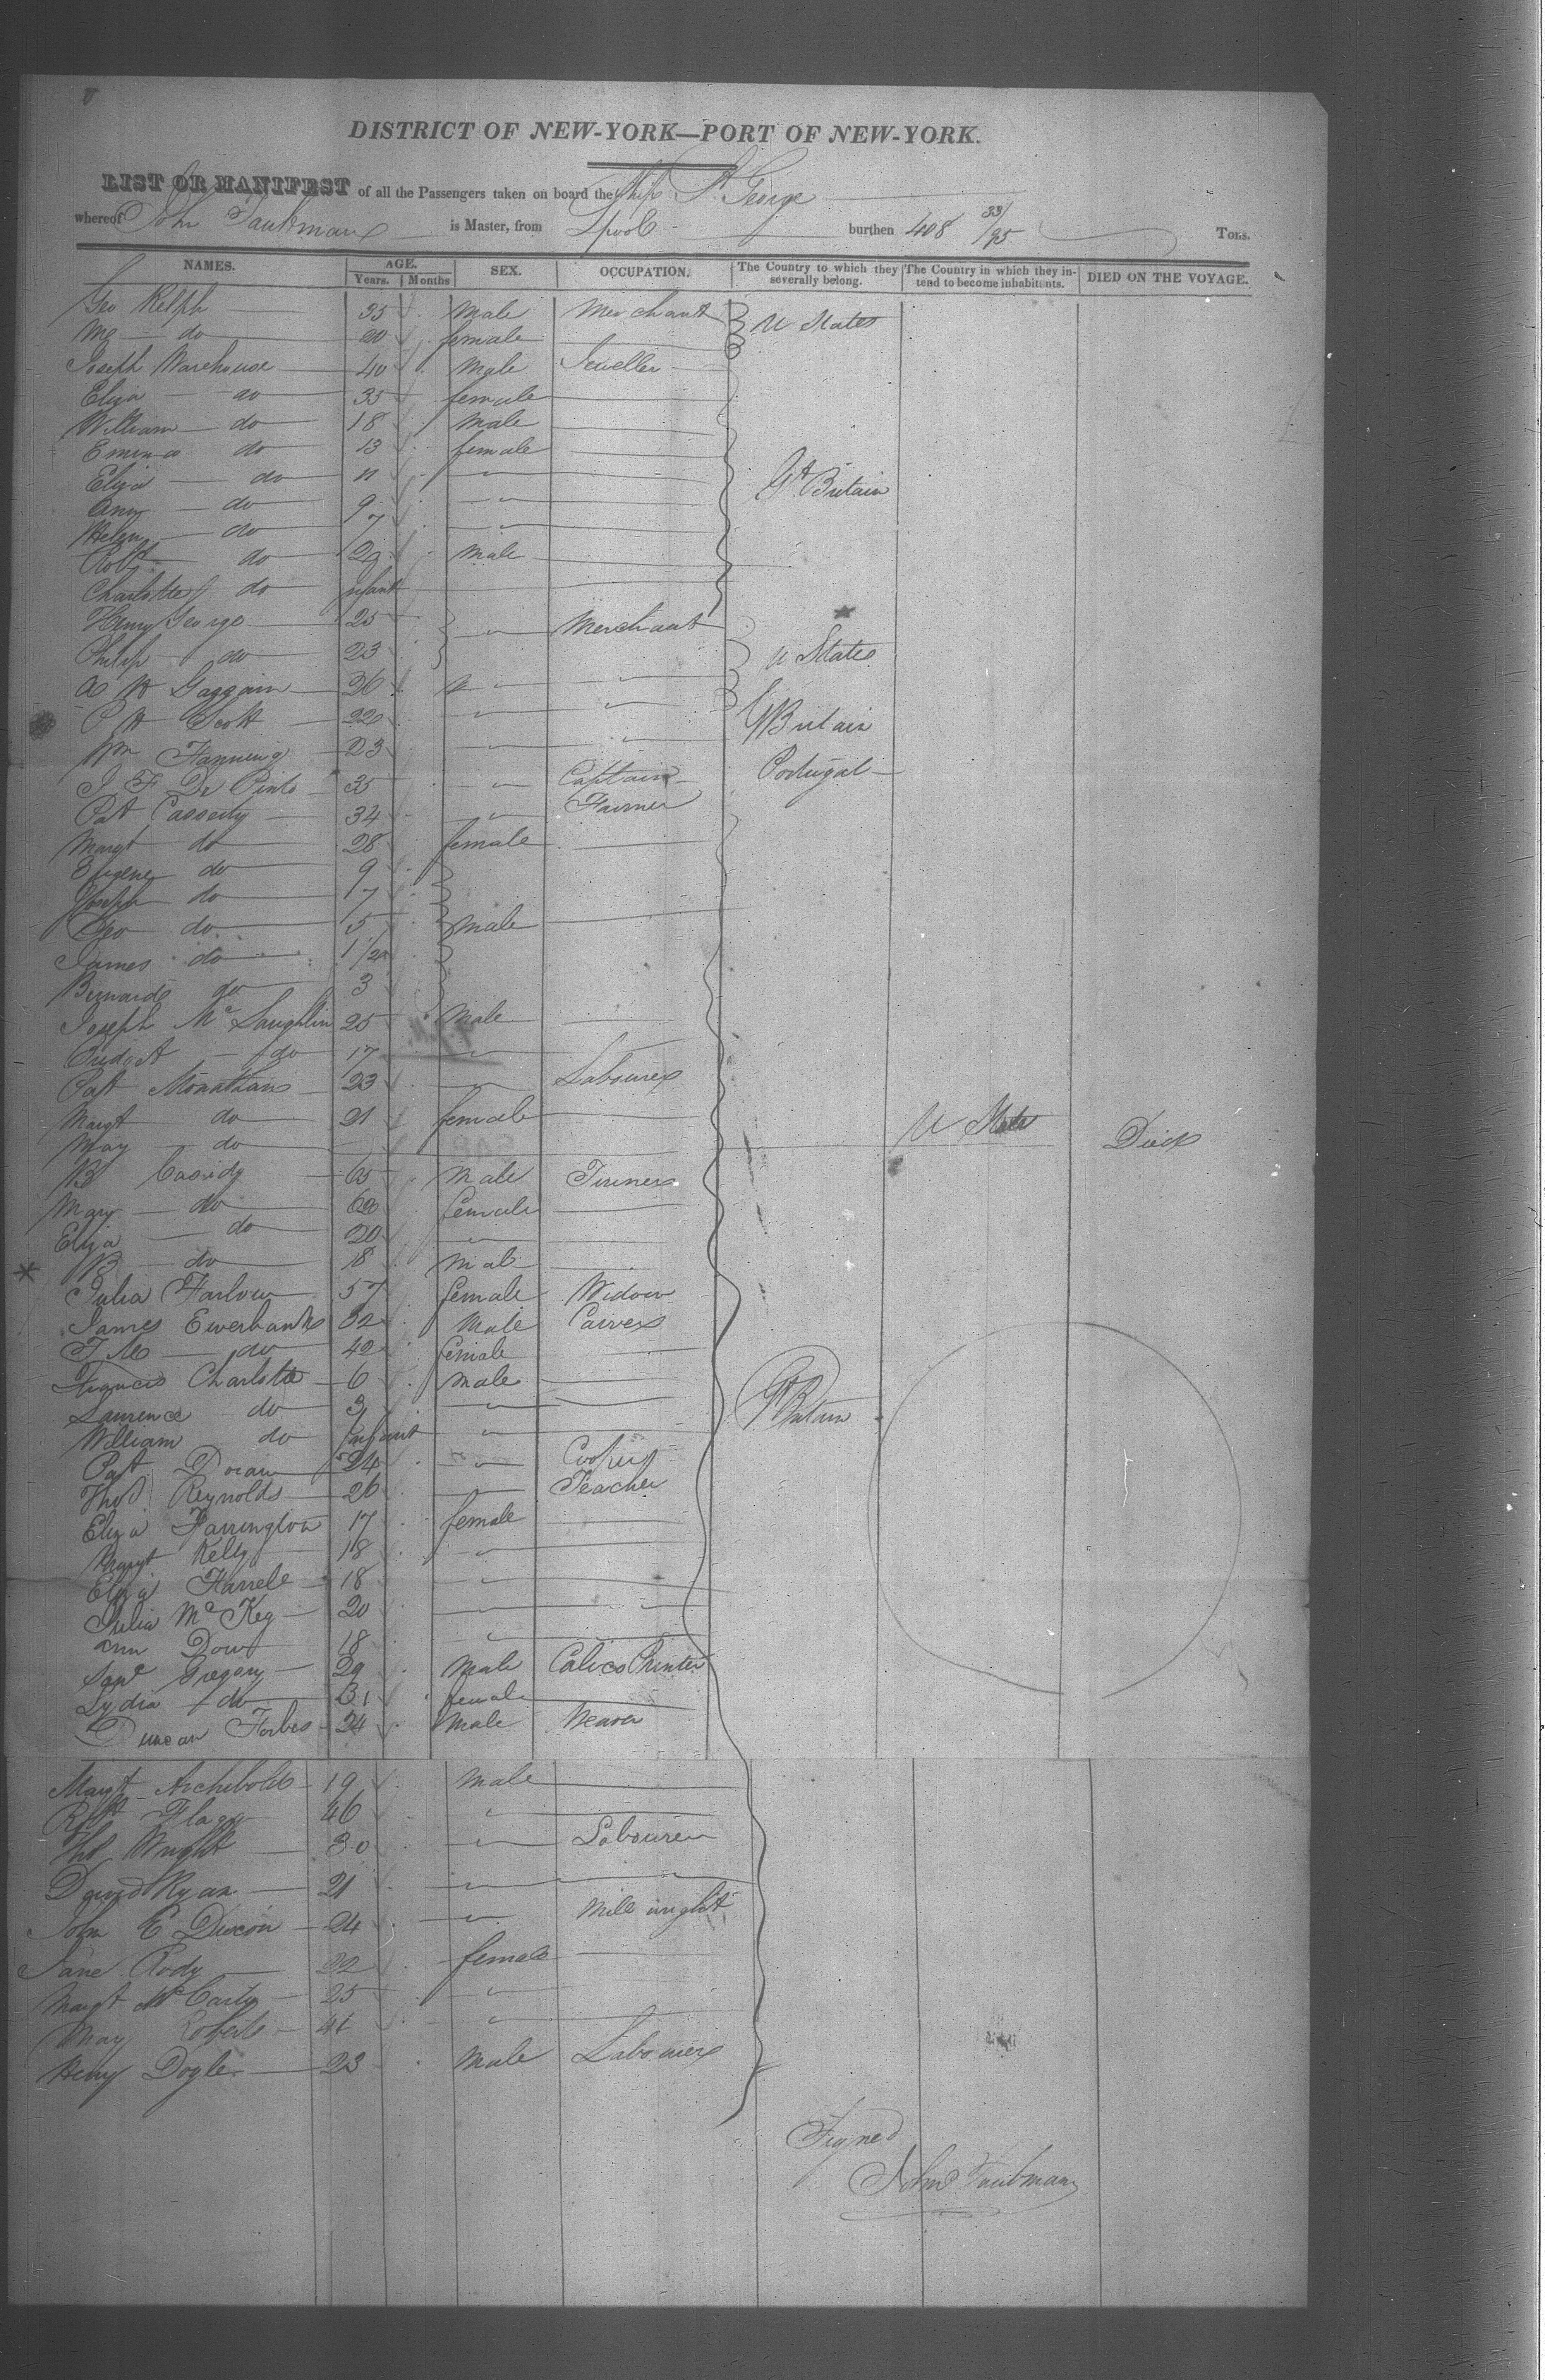 DISTRICT OF NEW-YORK—PORT OF NEW-YORK.
LIST OR MANIFEST of all the Passengers taken on board the Ship St George
whereof John Taubman is Master, from Lpool burthen 408 33/95 Tons.
NAMES. AGE. SEX. OCCUPATION. The Country to which they severally belong. The Country in which they intend to become inhabitants. DIED ON THE VOYAGE.
Years. Months
Geo Kelph 35 Male Merchant U States
Mrs do 20 female
Joseph Warehouse 40 Male Jeweller
Eliza do 35 female
William do 18 Male
Emma do 13 female
Eliza do 11 " Gt Britain
Ann do 9 "
Helen do 7 "
Robt do 2 male
Charlotte do infant
Henry George 25 " Merchant
Philip do 23 U States
A H Goggain 26 " "
P H Scott 22 " " G Britain
Wm Fanning 23 " "
J F De Pinto 35 " Captain Portugal
Pat Casserty 34 " Farmer
Margt do 28 female
Eugene do 9
Joseph do 7
Geo do 5 male
James do 1 1/2
Bernard do 3
Joseph Mc Laughlin 25 Male
Bridget do 17 "
Pat Monathan 23 " Labourer
Margt do 21 female
May do U States Died
B Casidy 65 Male Turner
Mary do 60 female
Eliza do 20 "
B do 18 male
Julia Farlow 57 female Widow
James Ewerbanks 32 Male Carver
do 42 female
Francis Charlotte 6 male
Laurence do 3 " Gt Britain
William do infant "
Pat Doran 24 " Cooper
Thos Reynolds 26 " Teacher
Eliza Farrington 17 female
Margt Kelly 18 "
Eliza Farrele 18 "
Julia Mc Keg 20 "
Ann Dow 18 "
Saml Gregory 29 Male Calico Printer
Lydia do 31 female
Duncan Forbes 24 Male Weaver
Margt Archibold 19 male
Robt Flagg 46 "
Thos Wright 30 " Labourer
David Ryan 21 " "
John E Dixon 24 " Mill wright
Jane Rody 22 female
Margt McCarty 25 "
May Roberts 41 "
Henry Dogle 23 Male Labourer
Signed
John Taubman